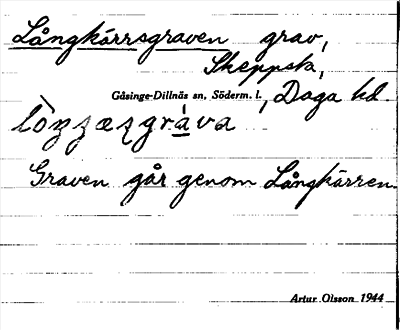 Långkärrsgraven grav,
Skeppsta,
Gåsinge-Dillnäs sn, Söderm. l., Daga hd.
Graven går genom Långkärren.
Artur Olsson 1944